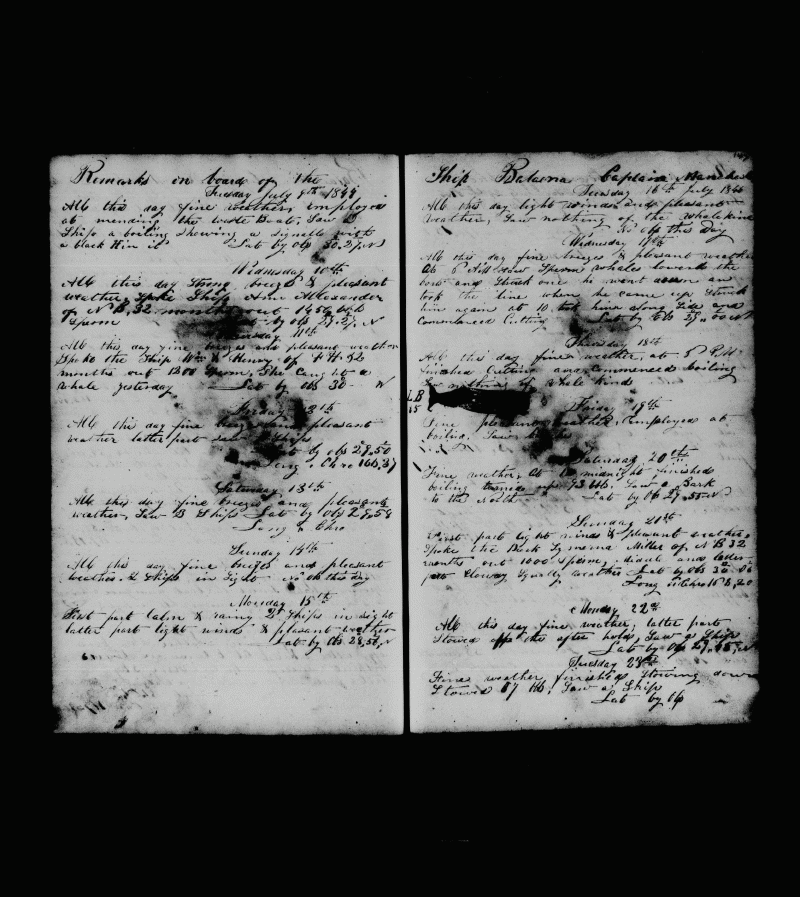 Remarks on board of the
Tuesday July 9th 1844
All this day fine weather, employed
at mending the waste Boat, Saw a
Ship a boiling showing a signal with
a black in it Lat by obs 30.21 N
Wednesday 10th
All this day Strong breeze & pleasant
weather, Spoke Ship Ann Alexander
of N B, 32 months out 1450 bbls
Sperm Lat by obs N
Thursday 11th
All this day fine breezes and pleasant weather
Spoke the Ship Wm & Henry of F H 32
months out 1300 Sperm, She Caught a
whale yesterday Lat by obs 30 N
Friday 12th
All this day fine breeze and pleasant
weather latter part saw Ships
Lat by obs 29.50
Long Chro 166,37
Saturday 13th
All this day fine breezes and pleasant
weather, Saw 3 Ships Lat by obs 29.58
Long Chro
Sunday 14th
All this day fine breezes and pleasant
weather, 2 Ships in Sight No ob this day
Monday 15th
First part Calm & rainy 2 Ships in sight
latter part light winds & pleasant weather
Lat by obs 28,54, N
Ship Balaena Captain
Tuesday 16th July 1844
All this day light winds and pleasant
weather, Saw nothing of the whale kind
No obs this Day
Wednesday 17th
All this day fine breezes & pleasant weather
At 6 AM saw Sperm whales lowered the
boats and Struck one he went down and
took the line when he came up Struck
him again at 10 took him along Side and
Commenced Cutting Lat by obs N
Thursday 18th
All this day fine weather, at 5 P.M.
finished Cutting and Commenced boiling
Saw nothing of whale kind
LB
15
Friday 19th
Fine pleasant weather, employed at
boiling, Saw
Saturday 20th
Fine weather, At midnight finished
boiling turned up 73 bbls, Saw a Bark
to the North Lat by ob 27.55 N
Sunday 21st
First part light winds & pleasant weather,
Spoke the Bark Miller of N B 32
months out 1000 Sperm, middle and latter
part Cloudy Squally weather Lat by obs
Long
Monday 22nd
All this day fine weather, latter part
Stowed off the after hold, Saw a Ship
Lat by ob N
Tuesday 23rd
Fine weather, finished Stowing down
Stowed 87 bbls, Saw a Ship
Lat by ob